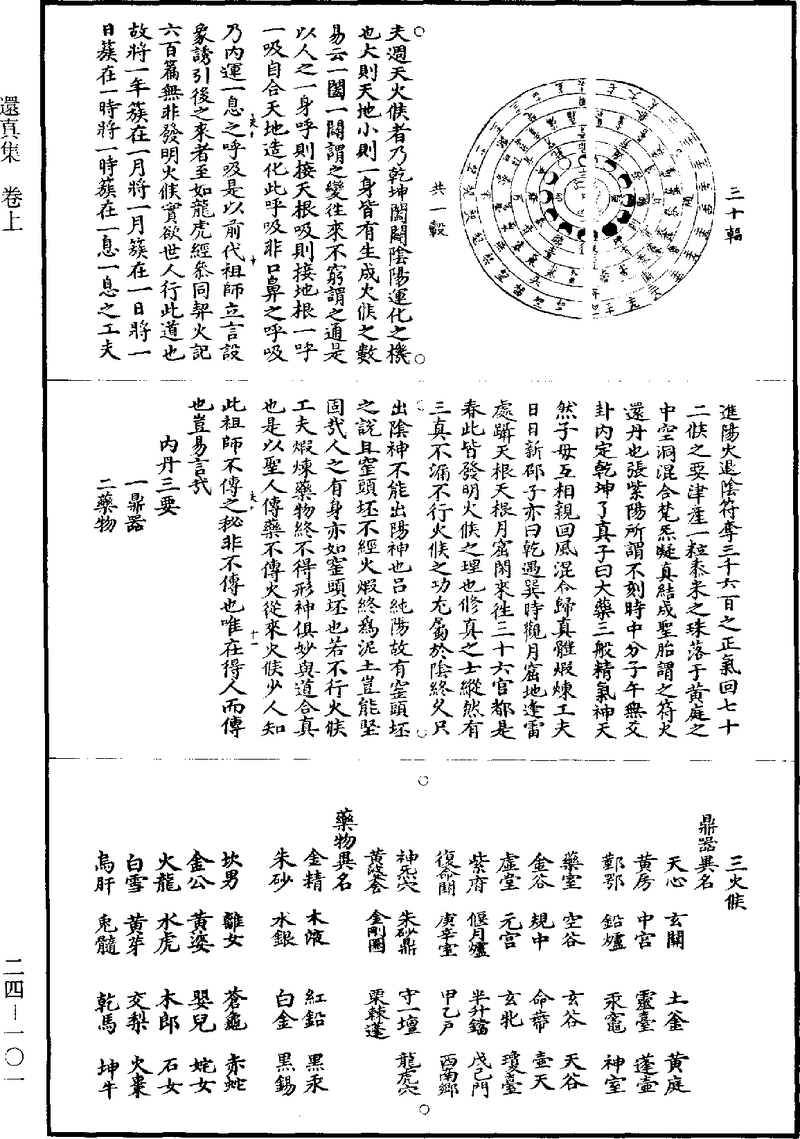 還真集 卷上
三十輻
共一轂
夫週天火候者乃乾坤闔闢陰陽運化之機
也大則天地小則一身皆有生成火候之數
易云一闔一闢謂之變往來不窮謂之通是
以人之一身呼則接天根吸則接地根一呼
一吸自合天地造化此呼吸非口鼻之呼吸
乃內運一息之呼吸是以前代祖師立言設
象誘引後之來者至如龍虎經叅同契火記
六百篇無非發明火候實欲世人行此道也
故將一年簇在一月將一月簇在一日將一
日簇在一時將一時簇在一息一息之工夫
進陽火退陰符奪三千六百之正氣回七十
二候之要津產一粒黍米之珠落于黃庭之
中空洞混合梵炁凝真結成聖胎謂之符火
還丹也張紫陽所謂不刻時中分子午無爻
卦內定乾坤了真子曰大藥三般精氣神天
然子母互相親回風混合歸真體煅煉工夫
日日新邵子亦曰乾遇巽時觀月窟地逢雷
處躡天根天根月窟閑來往三十六宮都是
春此皆發明火候之理也修真之士縱然有
三真不漏不行火候之功尤屬於陰終久只
出陰神不能出陽神也呂純陽故有窑頭坯
之說且窑頭坯不經火煅終為泥土豈能堅
固哉人之有身亦如窑頭坯也若不行火候
工夫煅煉藥物終不得形神俱妙與道合真
也是以聖人傳藥不傳火從來火候少人知
此祖師不傳之秘非不傳也唯在得人而傳
也豈易言哉
內丹三要
一鼎器
二藥物
三火候
鼎器異名
天心 玄關 土釜 黃庭
黃房 中宮 靈臺 蓬壺
鄞鄂 鉛爐 汞竈 神室
藥室 空谷 玄谷 天谷
金谷 規中 命蔕 壺天
虛堂 元宮 玄牝 瓊臺
紫府 偃月爐 半升鐺 戊己門
復命關 庚辛室 甲乙戶 西南鄉
神炁穴 朱砂鼎 守一壇 龍虎穴
黃金圈 金剛圈 栗棘蓬
藥物異名
金精 木液 紅鉛 黑汞
朱砂 水銀 白金 黑錫
坎男 離女 蒼龜 赤蛇
金公 黃婆 嬰兒 姹女
火龍 水虎 木郎 石女
白雪 黃芽 交梨 火棗
烏肝 兎髓 乾馬 坤牛
二四—一〇一